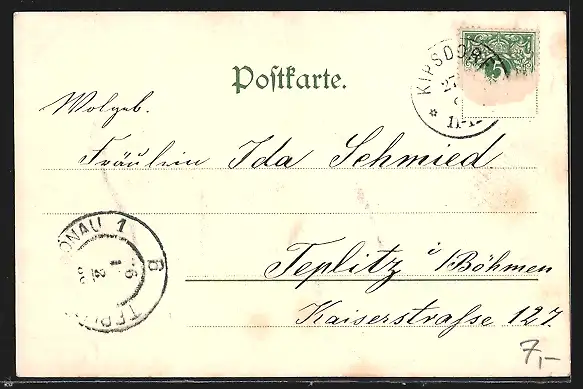 Postkarte.
KIPSDORF
27
11-1
5
Wolgeb.
Fräulein Ida Schmied.
Teplitz i/Böhmen
Kaiserstraße 127.
ÖNAU 1
B
TEPL
7,-